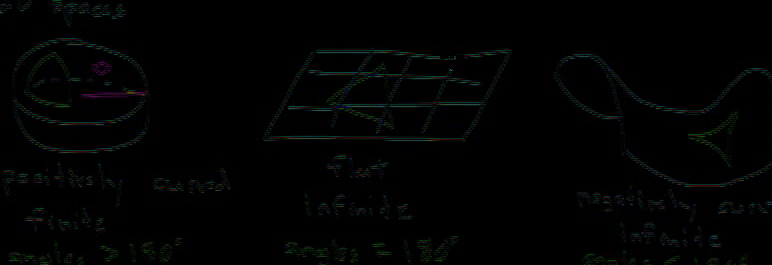 spaces
positively curved
finite
angles > 180°
flat
infinite
angles = 180°
negatively
infinite
angles <